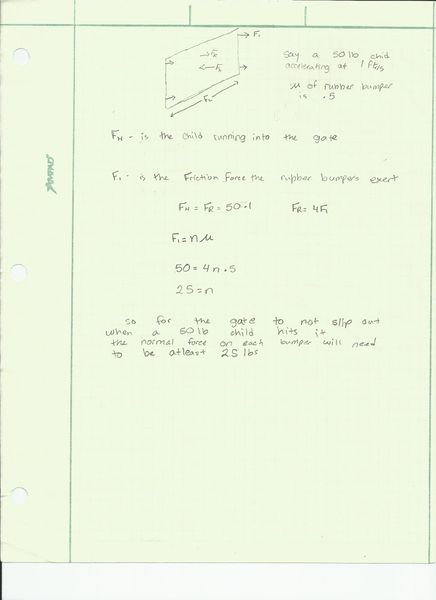 F₁
say a 50 lb chid
accelerating at 1 ft/s
μ of rubber bumper
is .5
F_R
F_H - is the child running into the gate
F₁ - is the Friction Force the rubber bumpers exert
F_H = F_R = 50·1 F_R = 4F₁
F₁ = nμ
50 = 4n·5
25 = n
so for the gate to not slip out
when a 50 lb child hits it
the normal force on each bumper will need
to be atleast 25 lbs